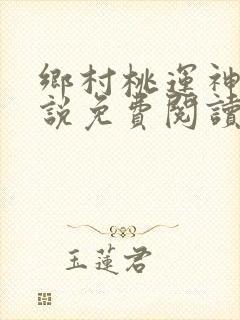 鄉村桃運神
說免費閱讀
玉蓮君